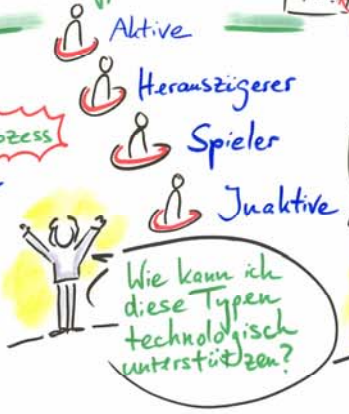 Aktive
Herauszögerer
ozess
Spieler
Inaktive
Wie kann ich
diese Typen
technologisch
unterstützen?